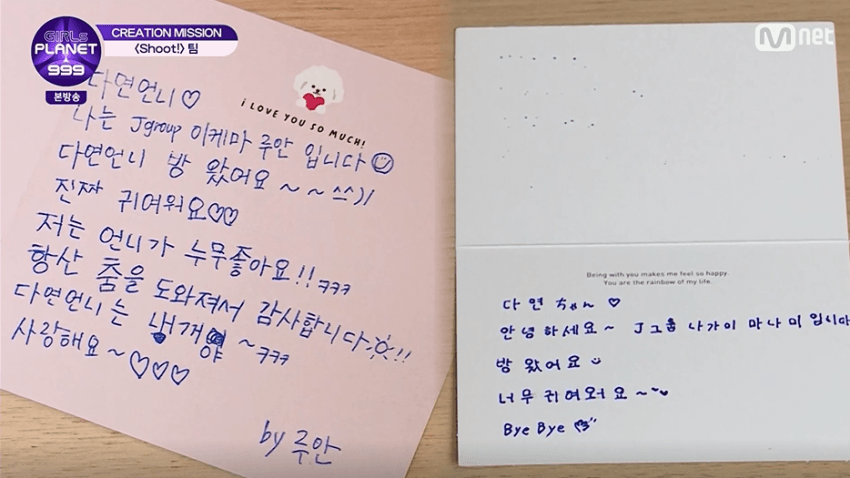 GIRLS
PLANET
999
본방송
CREATION MISSION
<Shoot!> 팀
Mnet
I LOVE YOU SO MUCH!
다연언니♡
나는 Jgroup 이케마 루안 입니다☺
다연언니 방 왔어요 ~~ ^^))
진짜 귀여워요♡♡
저는 언니가 누무좋아요!! ㅋㅋㅋ
항산 춤을 도와져서 감사합니다!!
다연언니는 내꺼야~ ㅋㅋㅋ
사랑해요~♡♡♡
by 루안
Being with you makes me feel so happy.
You are the rainbow of my life.
다연 ちゃん ♡
안녕하세요~ J그룹 나가이 마나미 입니다
방 왔어요
너무 귀여워요~
Bye Bye